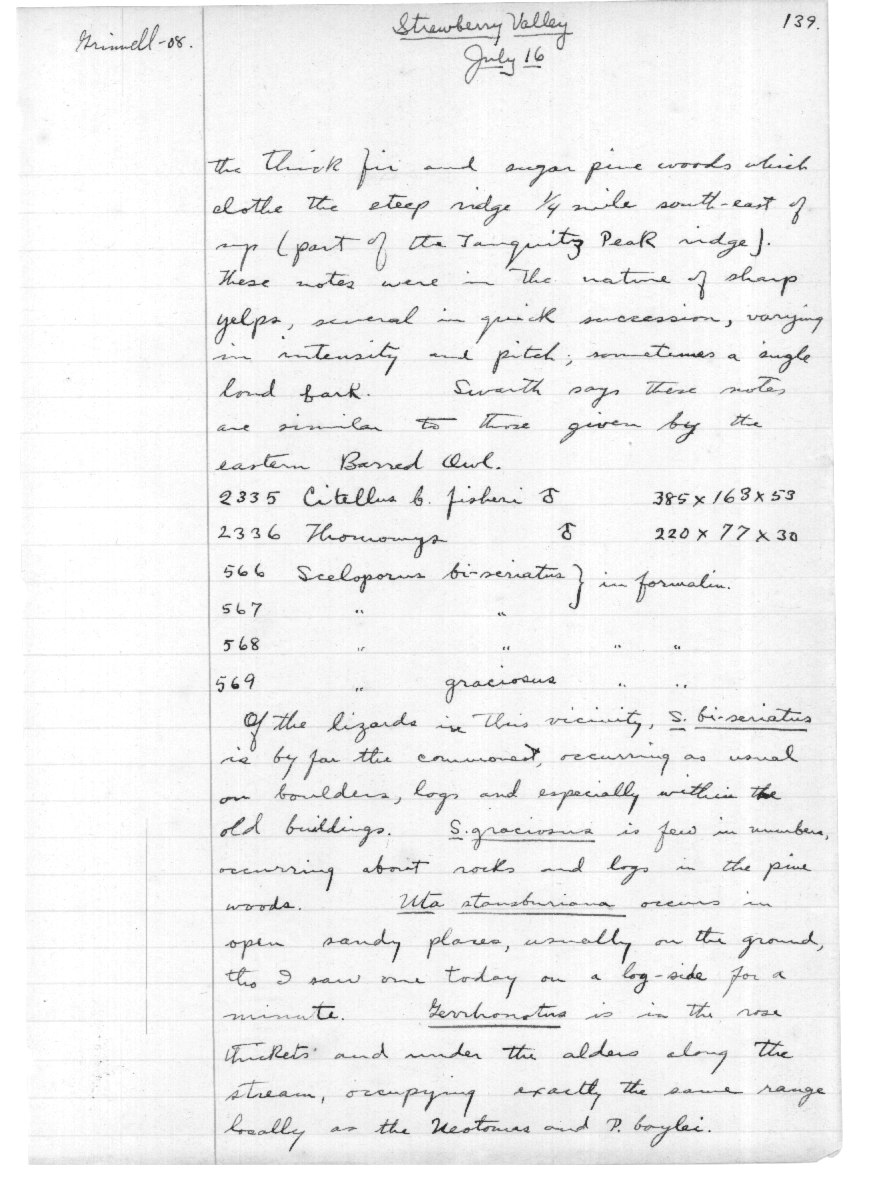 Grinnell-08.
Strawberry Valley
139.
July 16
the thick fir and sugar pine woods which
clothe the steep ridge 1/4 mile south-east of
up (part of the Tauquitz Peak ridge).
These notes were in the nature of sharp
yelps, several in quick succession, varying
in intensity and pitch; sometimes a single
loud bark. Swarth says these notes
are similar to those given by the
eastern Barred Owl.
2335 Citellus b. fisheri ♂ 385 x 163 x 53
2336 Thomomys ♂ 220 x 77 x 30
566 Sceloporus bi-seriatus } in formalin.
567 " "
568 " " " "
569 " graciosus " "
Of the lizards in this vicinity, S. bi-seriatus
is by far the commonest, occurring as usual
on boulders, logs and especially within the
old buildings. S. graciosus is few in numbers,
occurring about rocks and logs in the pine
woods. Uta stansburiana occurs in
open sandy places, usually on the ground,
tho I saw one today on a log-side for a
minute. Gerrhonotus is in the rose
thickets and under the alders along the
stream, occupying exactly the same range
locally as the Neotomas and P. boylei.